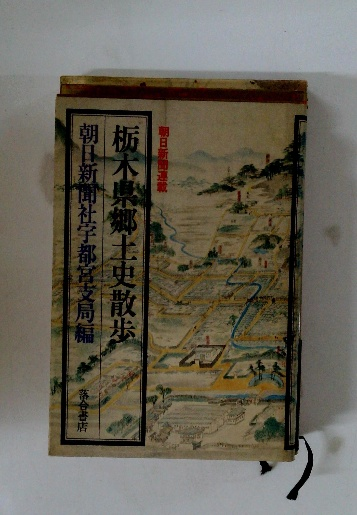 朝日新聞連載
栃木県郷土史散歩
朝日新聞社宇都宮支局編
落合書店